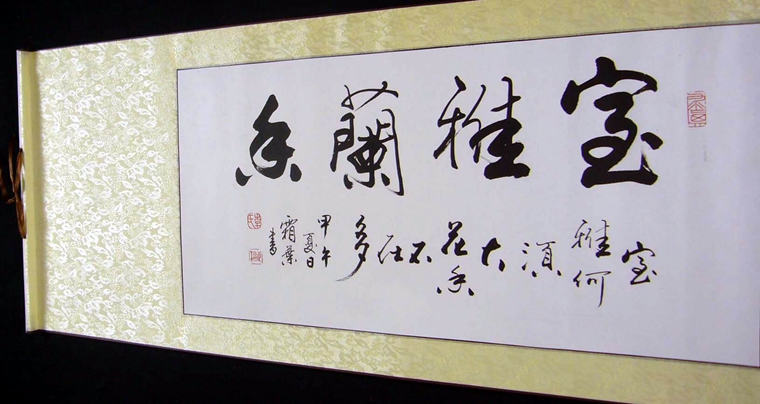 室雅蘭香
室
雅何
須
大
花香
不
在
多
甲午
夏日
霜葉
書